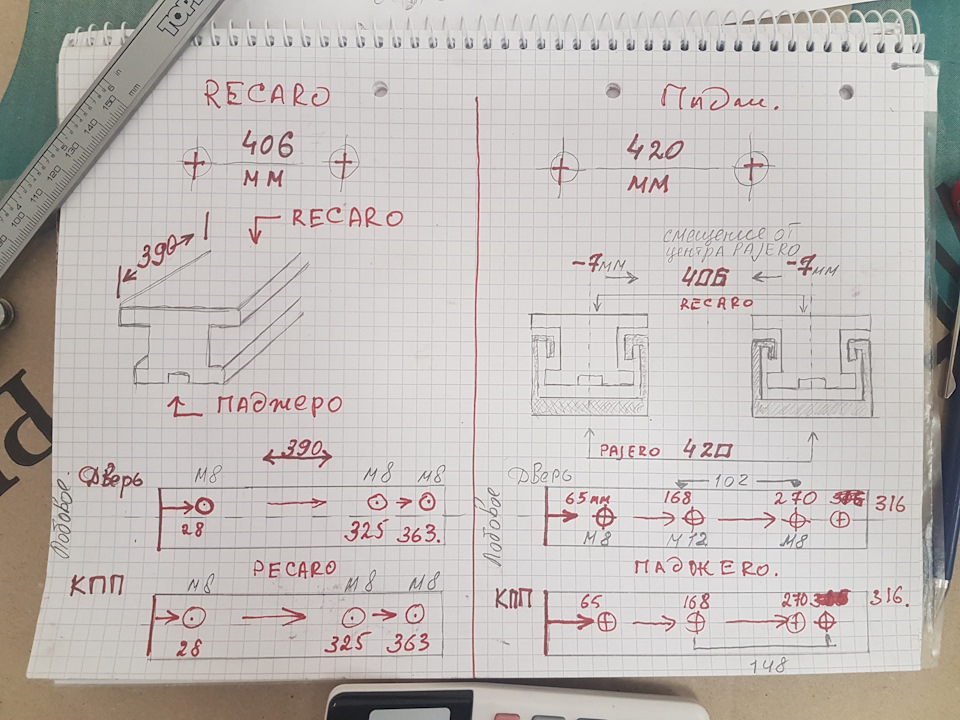 TOP
RECARO
406
ММ
390
RECARO
ПАДЖЕРО
390
Дверь
М8
М8
М8
Лобовое.
28
325
363.
РЕCARO
КПП
М8
М8
М8
28
325
363
420
ММ
смещение от
центра PAJERO
-7мм
406
-7мм
RECARO
PAJERO 420
Дверь
102
Лобовое
65мм
168
270
316
М8
М12
М8
ПАДЖЕRO.
КПП
65
168
270
316.
148